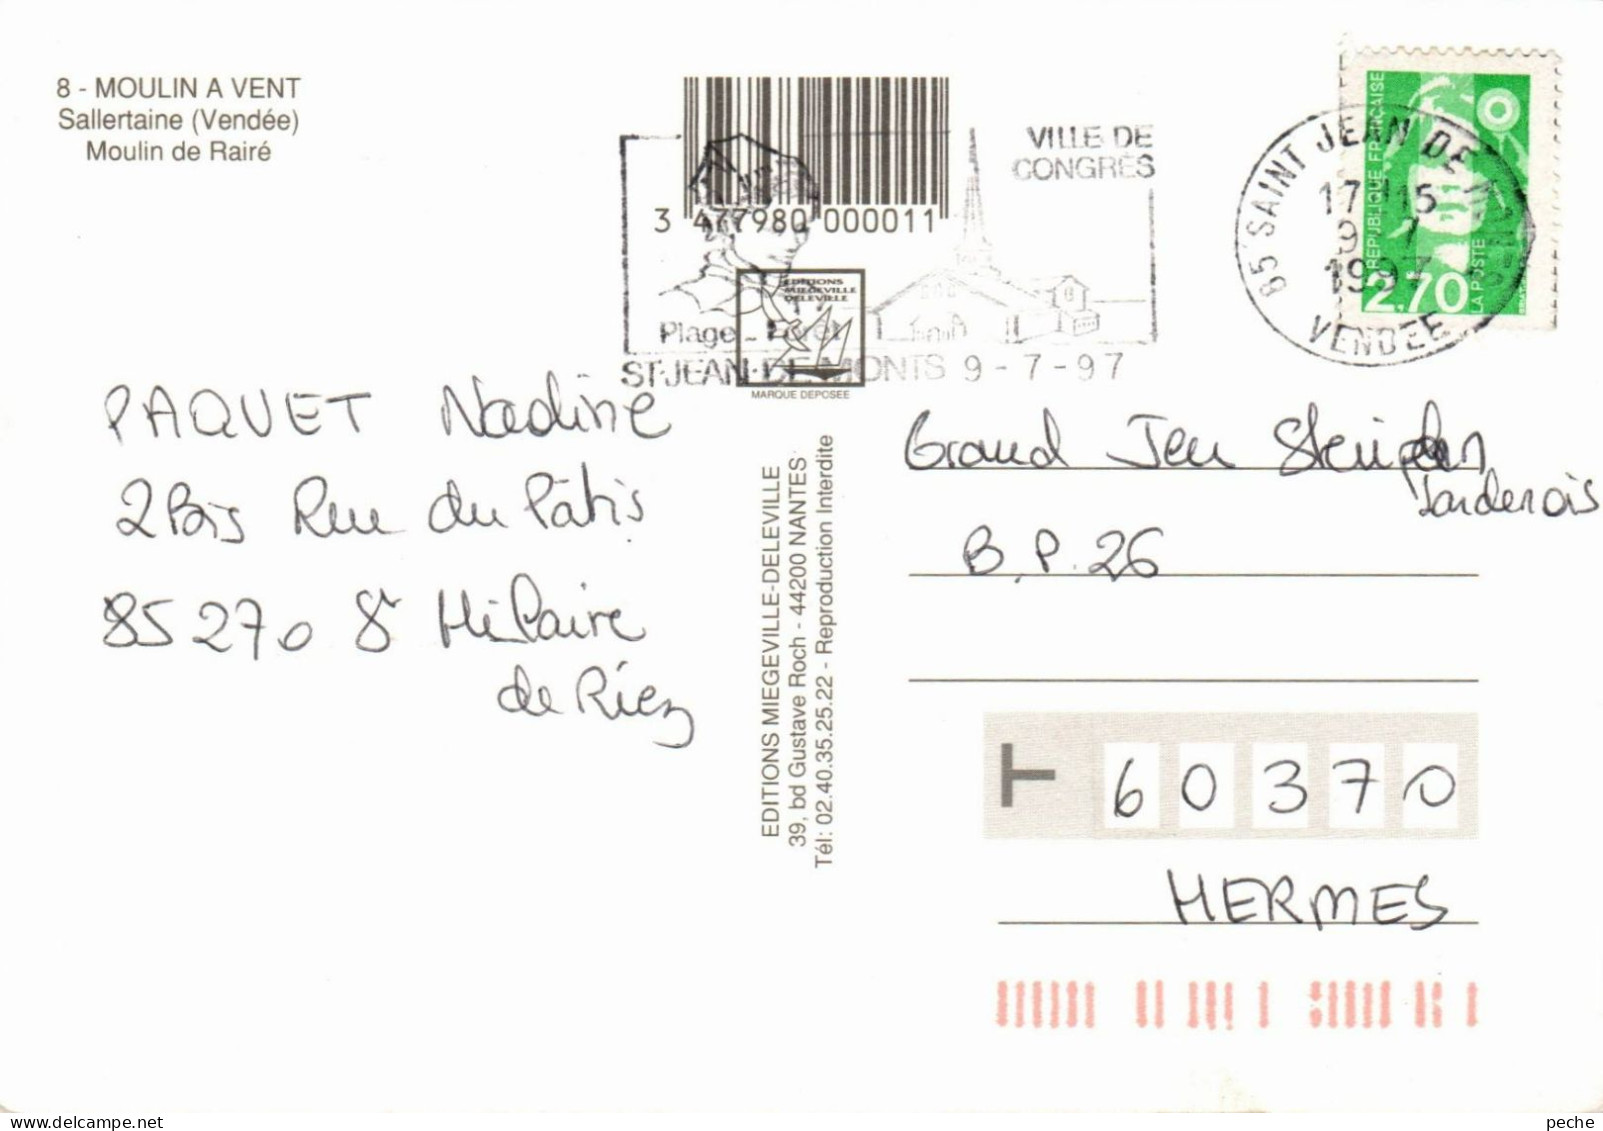 8 - MOULIN A VENT
Sallertaine (Vendée)
Moulin de Rairé
3 477980 000011
VILLE DE
CONGRÈS
EDITIONS
MIEGEVILLE
DELEVILLE
Plage - Forêt
ST-JEAN-DE-MONTS 9-7-97
MARQUE DEPOSEE
85 SAINT JEAN DE MONTS
17H15
9-7
1997
VENDEE
REPUBLIQUE FRANÇAISE
2.70
LA POSTE
PAQUET Nadine
2 Bis Rue du Pâtis
85270 St Hilaire
de Riez
EDITIONS MIEGEVILLE-DELEVILLE
39, bd Gustave Roch - 44200 NANTES
Tél: 02.40.35.25.22 - Reproduction Interdite
Grand Jeu
Tardenois
B.P. 26
60370
HERMES
peche